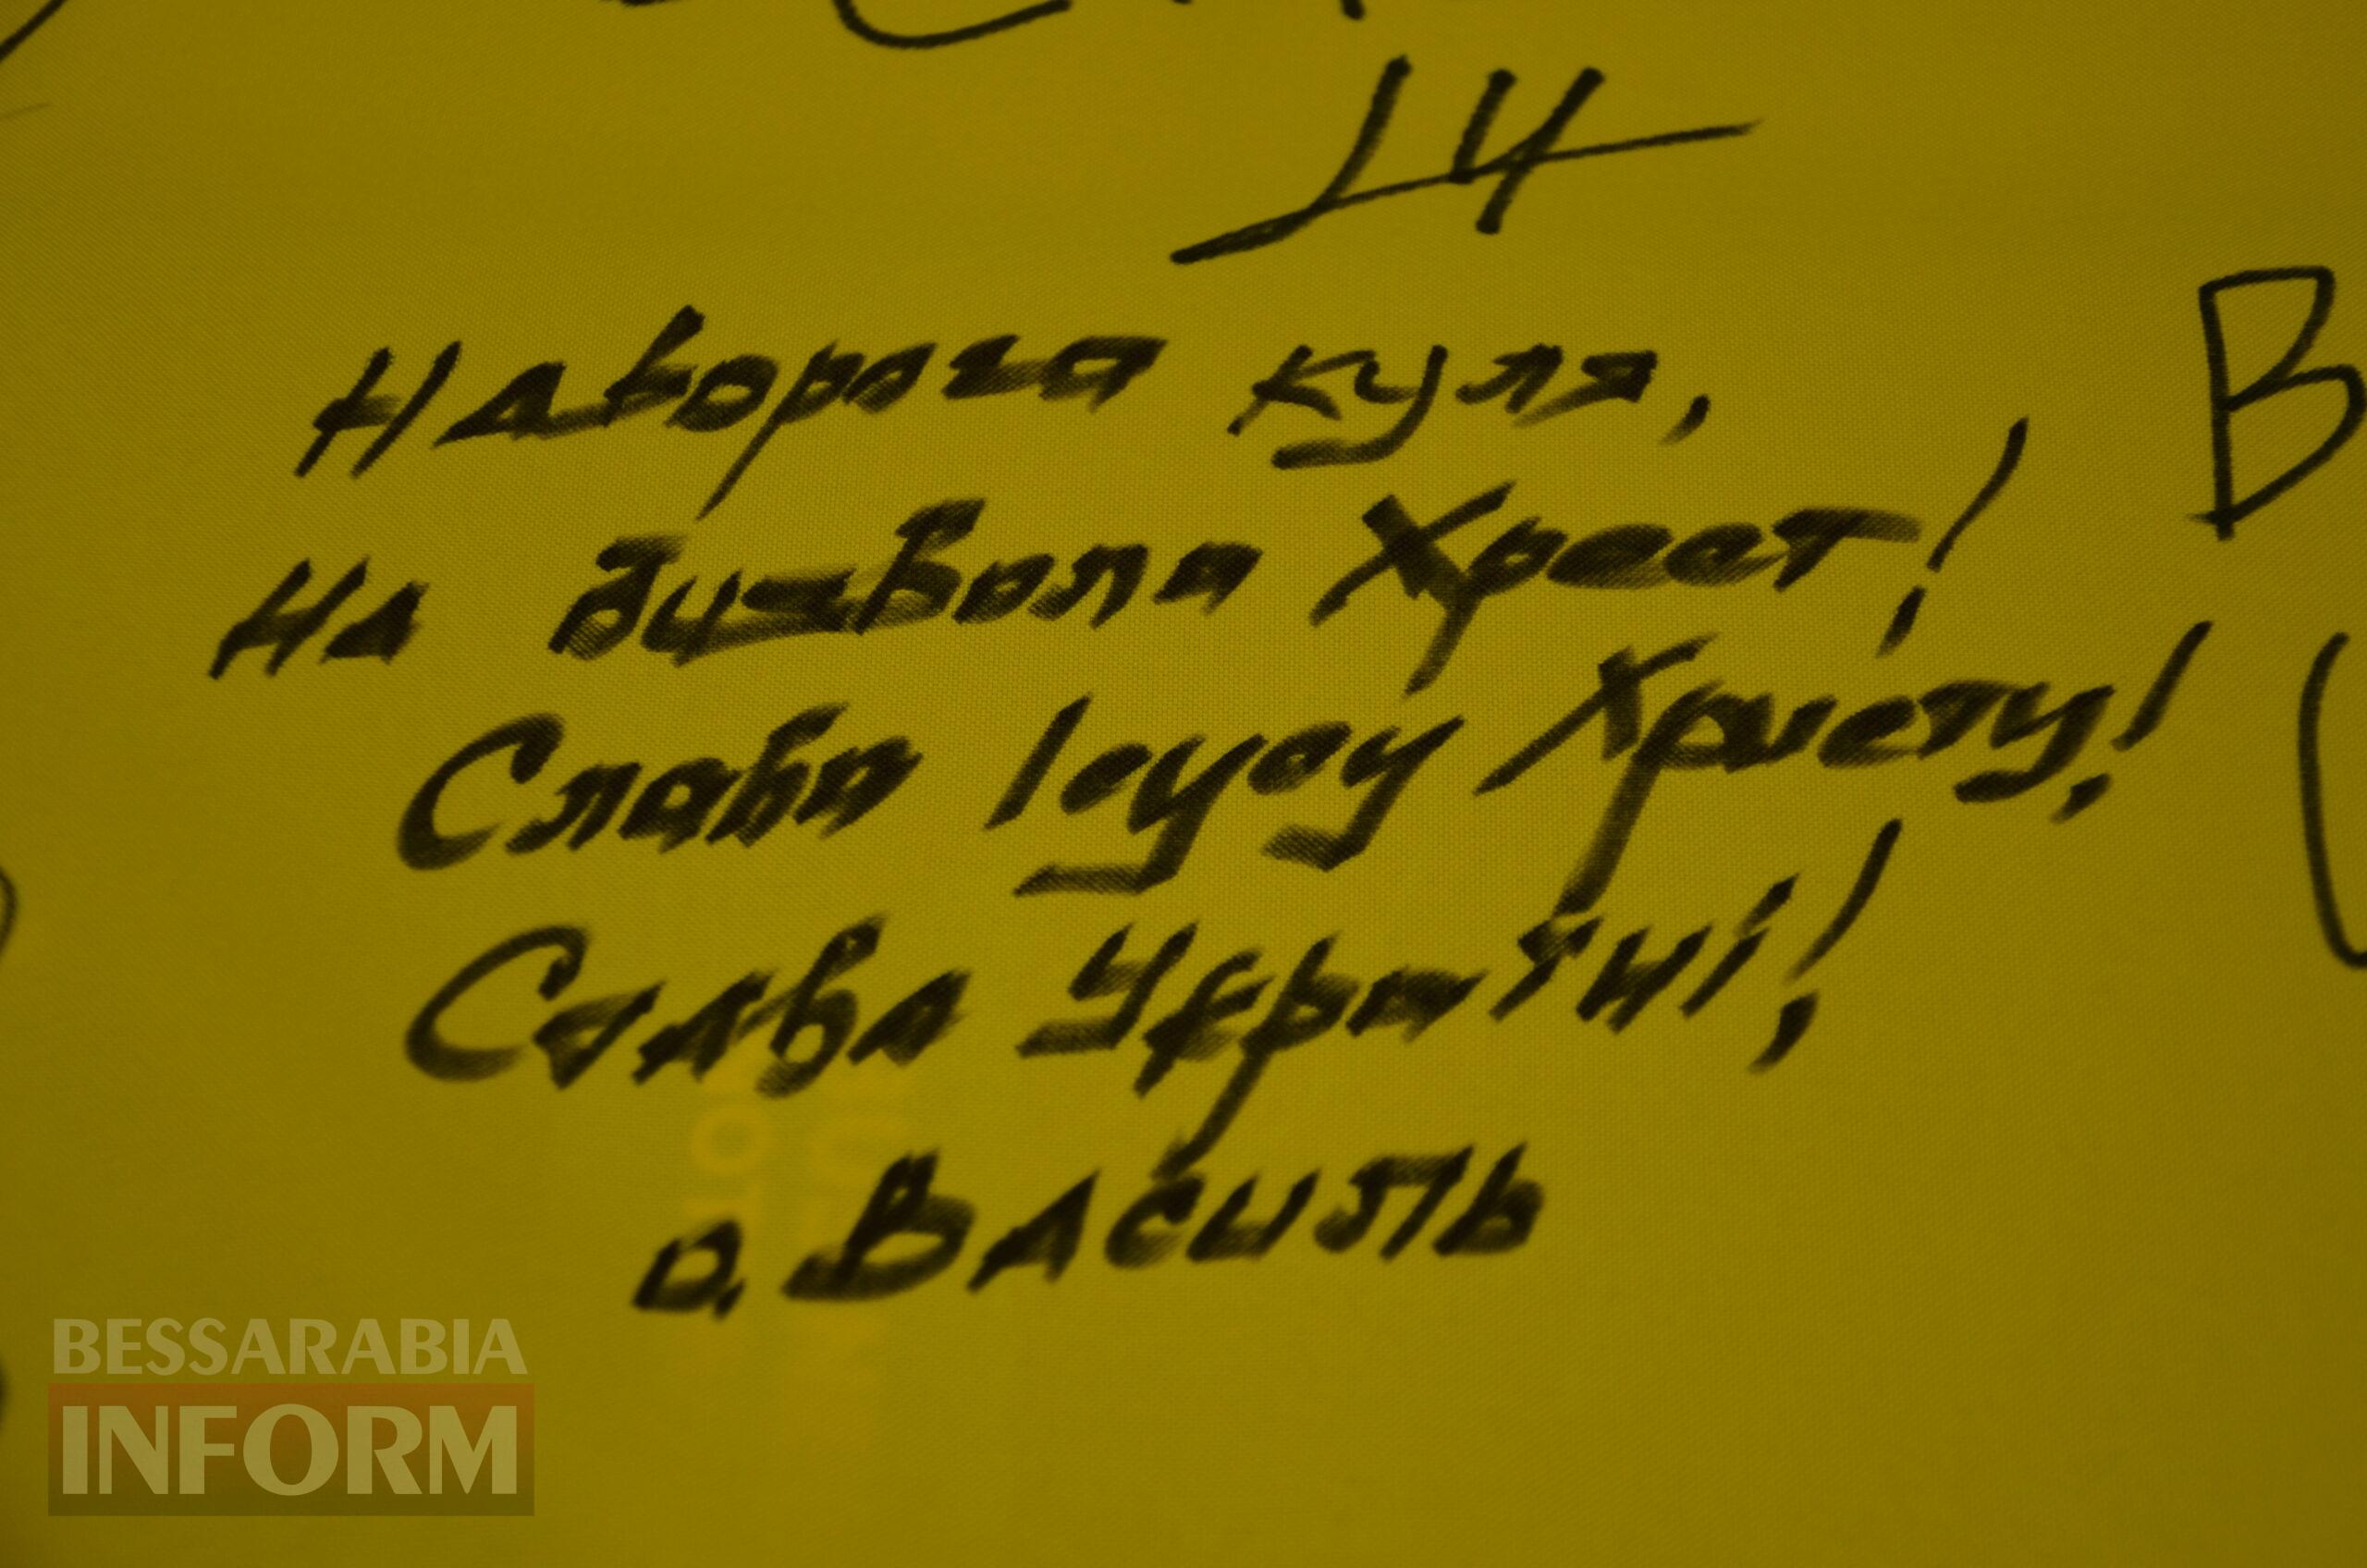 На ворога куля,
На диявола Хрест!
Слава Ісусу Христу!
Слава Україні!
о, Василь
BESSARABIA
INFORM